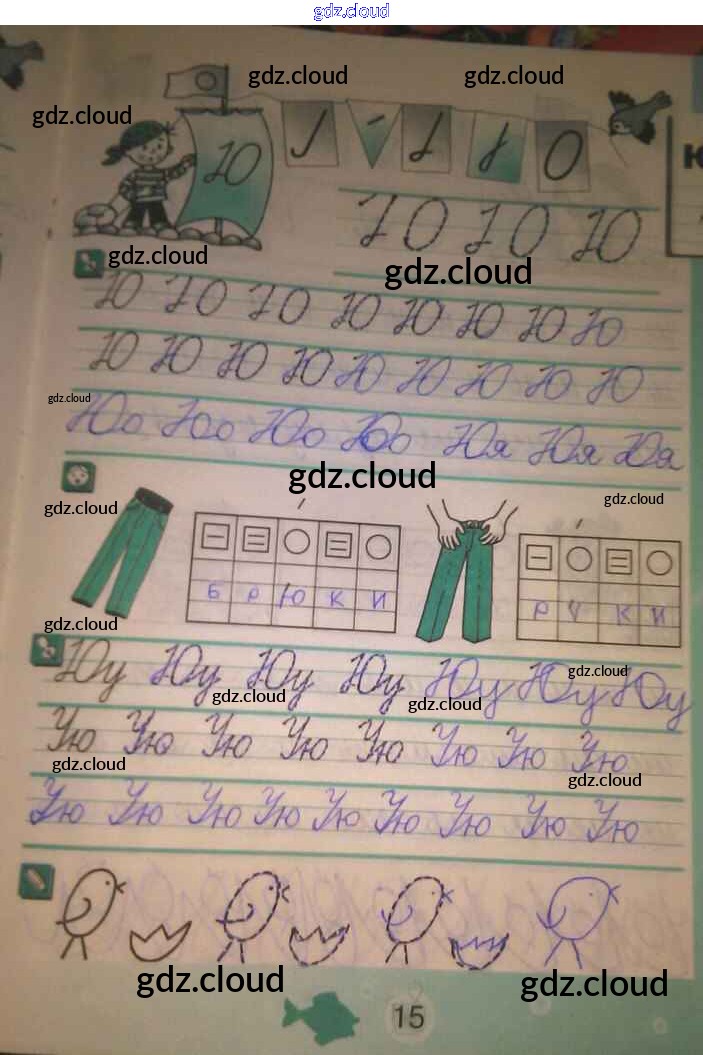 gdz.cloud
gdz.cloud gdz.cloud
gdz.cloud
Ю
О
Ю Ю Ю
gdz.cloud
gdz.cloud
Ю Ю Ю Ю Ю Ю Ю Ю
Ю Ю Ю Ю Ю Ю Ю Ю Ю
gdz.cloud
Юо Юо Юо Юо Юя Юя Юя
gdz.cloud
gdz.cloud
gdz.cloud
Б Р Ю К И
Р У К И
gdz.cloud
Юу Юу Юу Юу Юу Юу Юу
gdz.cloud
gdz.cloud
gdz.cloud
Ую Ую Ую Ую Ую Ую Ую Ую
gdz.cloud
gdz.cloud
Ую Ую Ую Ую Ую Ую Ую Ую Ую
gdz.cloud
gdz.cloud
15